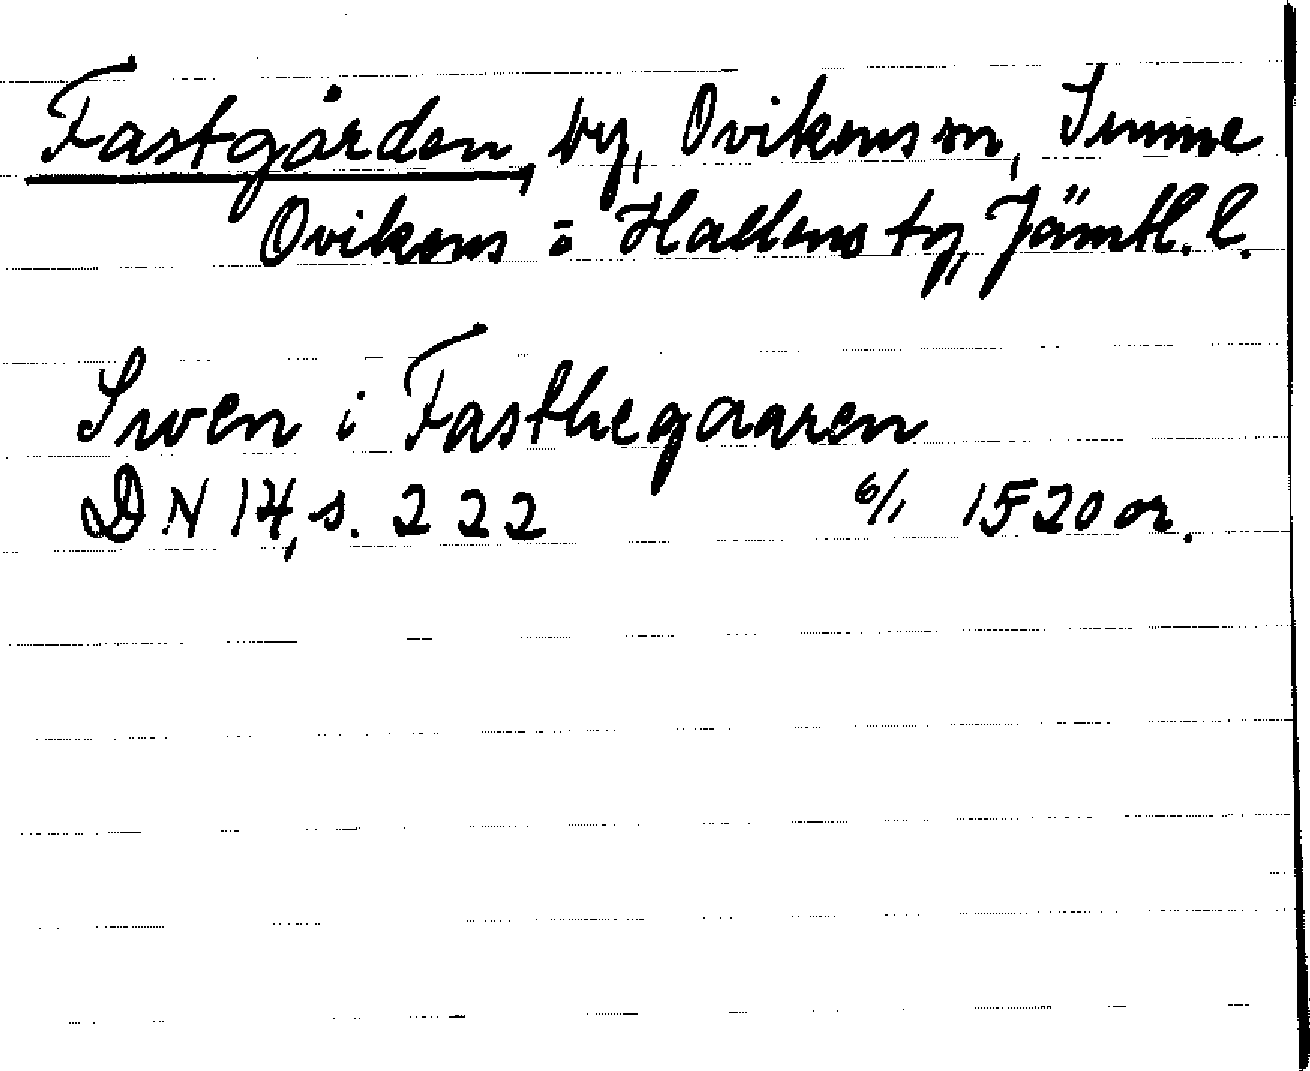 Fastgården, by, Ovikens sn, Sunne
Ovikens o Hallens tg, Jämtl. l.
Swen i Fasthegaaren
DN 14, s. 222 6/1 1520 or.